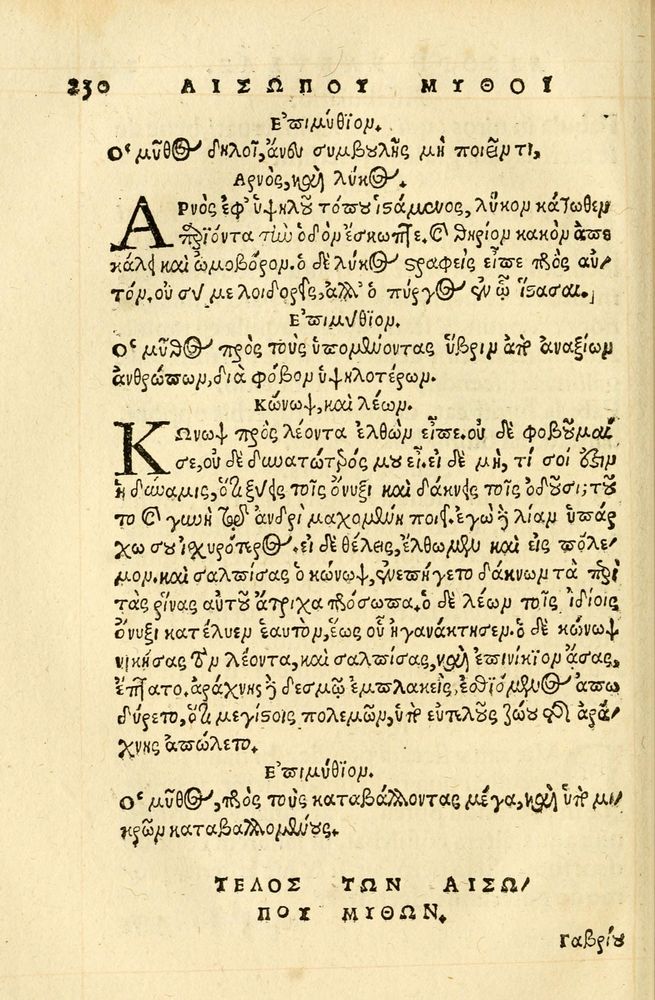 230 ΑΙΣΩΠΟΥ ΜΥΘΟΙ
Επιμύθιον.
Ο μῦθος δηλοῖ, ἄνευ συμβουλῆς μὴ ποιεῖν τι,
Αρνὸς, καὶ λύκος.
ΑΡΝὸς ἐφ' ὑψηλοῦ τόπου ἱστάμενος, λύκον κάτωθεν
προϊόντα τὴν ὁδὸν ἔσκωπτε. καὶ θηρίον κακὸν ἀπε
κάλει καὶ ὠμοβόρον. ὁ δὲ λύκος στραφεὶς εἶπε πρὸς αὐ/
τόν. οὐ σύ με λοιδορεῖς, ἀλλ' ὁ πύργος ἐν ᾧ ἵστασαι.
Επιμύθιον.
Ο μῦθος πρὸς τοὺς ὑπομένοντας ὕβριν ἀπ' ἀναξίων
ἀνθρώπων, διὰ φόβον ὑψηλοτέρων.
Κώνωψ, καὶ λέων.
ΚΩνωψ πρὸς λέοντα ἐλθὼν εἶπε. οὐ δὲ φοβοῦμαί
σε, οὐ δὲ δυνατώτερός μου εἶ. εἰ δὲ μὴ, τί σοί ἐστιν
ἡ δύναμις, ὅτι ξύεις τοῖς ὄνυξι καὶ δάκνεις τοῖς ὀδοῦσι; τοῦ
το καὶ γυνὴ τῷ ἀνδρὶ μαχομένη ποιεῖ. ἐγὼ δὲ λίαν ὑπάρ
χω σου ἰσχυρότερος. εἰ δὲ θέλεις, ἔλθωμεν καὶ εἰς πόλε/
μον. καὶ σαλπίσας ὁ κώνωψ, ἐνεπήγετο δάκνων τὰ περὶ
τὰς ῥῖνας αὐτοῦ ἄτριχα πρόσωπα. ὁ δὲ λέων τοῖς ἰδίοις
ὄνυξι κατέλυεν ἑαυτὸν, ἕως οὗ ἠγανάκτησεν. ὁ δὲ κώνωψ
νικήσας τὸν λέοντα, καὶ σαλπίσας, καὶ ἐπινίκιον ᾄσας,
ἔπτατο. ἀράχνης δὲ δεσμῷ ἐμπλακεὶς, ἐσθιόμενος ἀπω
δύρετο, ὅτι μεγίστοις πολεμῶν, ὑπὸ εὐτελοῦς ζώου τῆς ἀρά/
χνης ἀπώλετο.
Επιμύθιον.
Ο μῦθος, πρὸς τοὺς καταβάλλοντας μέγα, καὶ ὑπὸ μι/
κρῶν καταβαλλομένους.
ΤΕΛΟΣ ΤΩΝ ΑΙΣΩ/
ΠΟΥ ΜΙΘΩΝ.
Γαβρίου